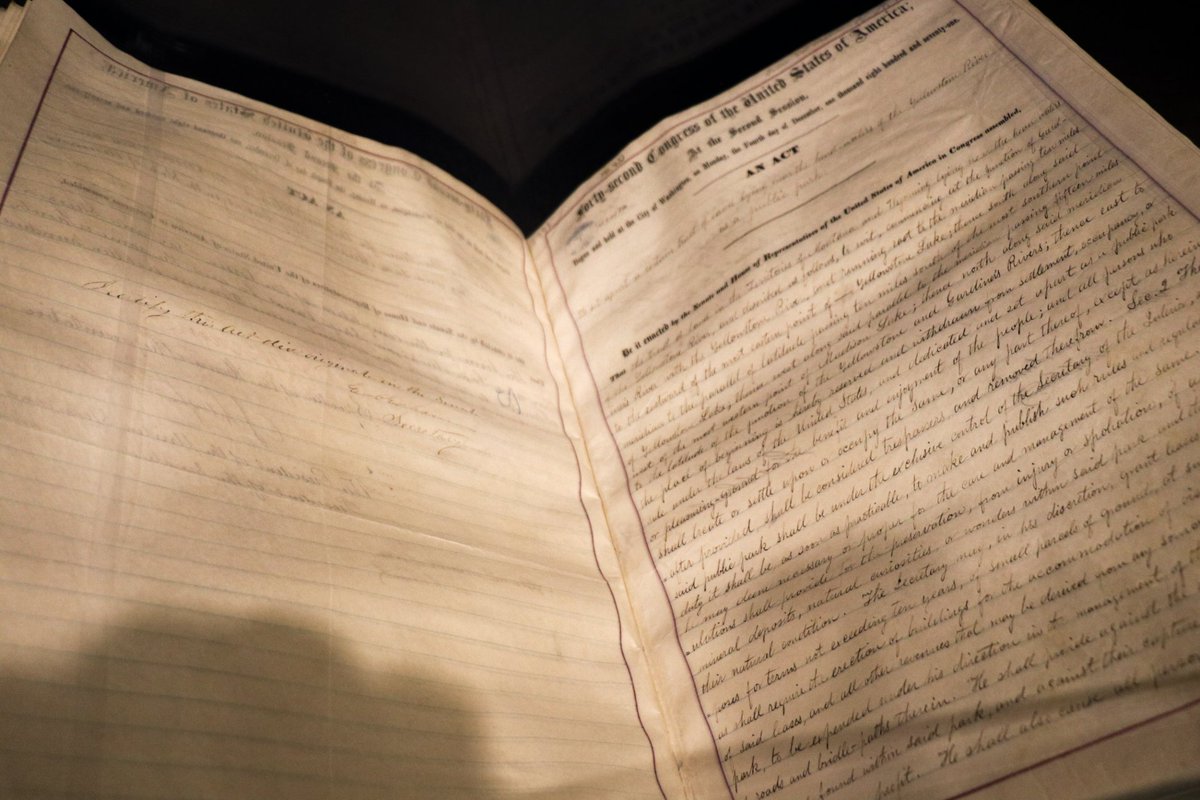 I certify this Act did originate in the Senate
Secretary
Forty-second Congress of the United States of America;
At the Second Session,
Begun and held at the City of Washington, on Monday, the Fourth day of December, one thousand eight hundred and seventy-one.
AN ACT
To set apart a certain tract of land lying near the head-waters of the Yellowstone River
as a public park.
Be it enacted by the Senate and House of Representatives of the United States of America in Congress assembled,
That the tract of land in the Territories of Montana and Wyoming lying near the head-waters
of the Yellowstone River, and described as follows, to wit, commencing at the junction of Gardi-
ner's river with the Yellowstone River, and running east to the meridian passing ten miles
to the eastward of the most eastern point of Yellowstone Lake; thence south along said
meridian to the parallel of latitude passing ten miles south of the most southern point
of Yellowstone Lake; thence west along said parallel to the meridian passing fifteen miles
west of the most western point of Madison Lake; thence north along said meridian
to the latitude of the junction of the Yellowstone and Gardiner's Rivers; thence east to
the place of beginning is hereby reserved and withdrawn from settlement, occupancy, or
sale under the laws of the United States, and dedicated and set apart as a public park
or pleasuring-ground for the benefit and enjoyment of the people; and all persons who
shall locate or settle upon or occupy the same, or any part thereof, except as herein
after provided shall be considered trespassers and removed therefrom. Sec. 2 Th
said public park shall be under the exclusive control of the Secretary of the Interior
duty it shall be as soon as practicable, to make and publish such rules and regu
he may deem necessary or proper for the care and management of the same
ulations shall provide for the preservation, from injury or spoliation, of
mineral deposits, natural curiosities or wonders within said park and
their natural condition. The Secretary may, in his discretion, grant leases
poses for terms not exceeding ten years, of small parcels of ground, at su
as shall require the erection of buildings for the accommodation of vis
of said leases, and all other revenues that may be derived from any so
park, to be expended under his direction in the management of
roads and bridle-paths therein. He shall provide against the
found within said park, and against their capture
profit. He shall also cause all persons